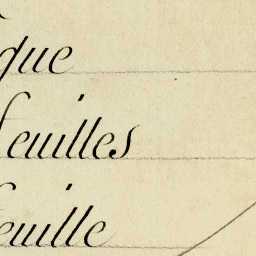 que
feuilles
feuille